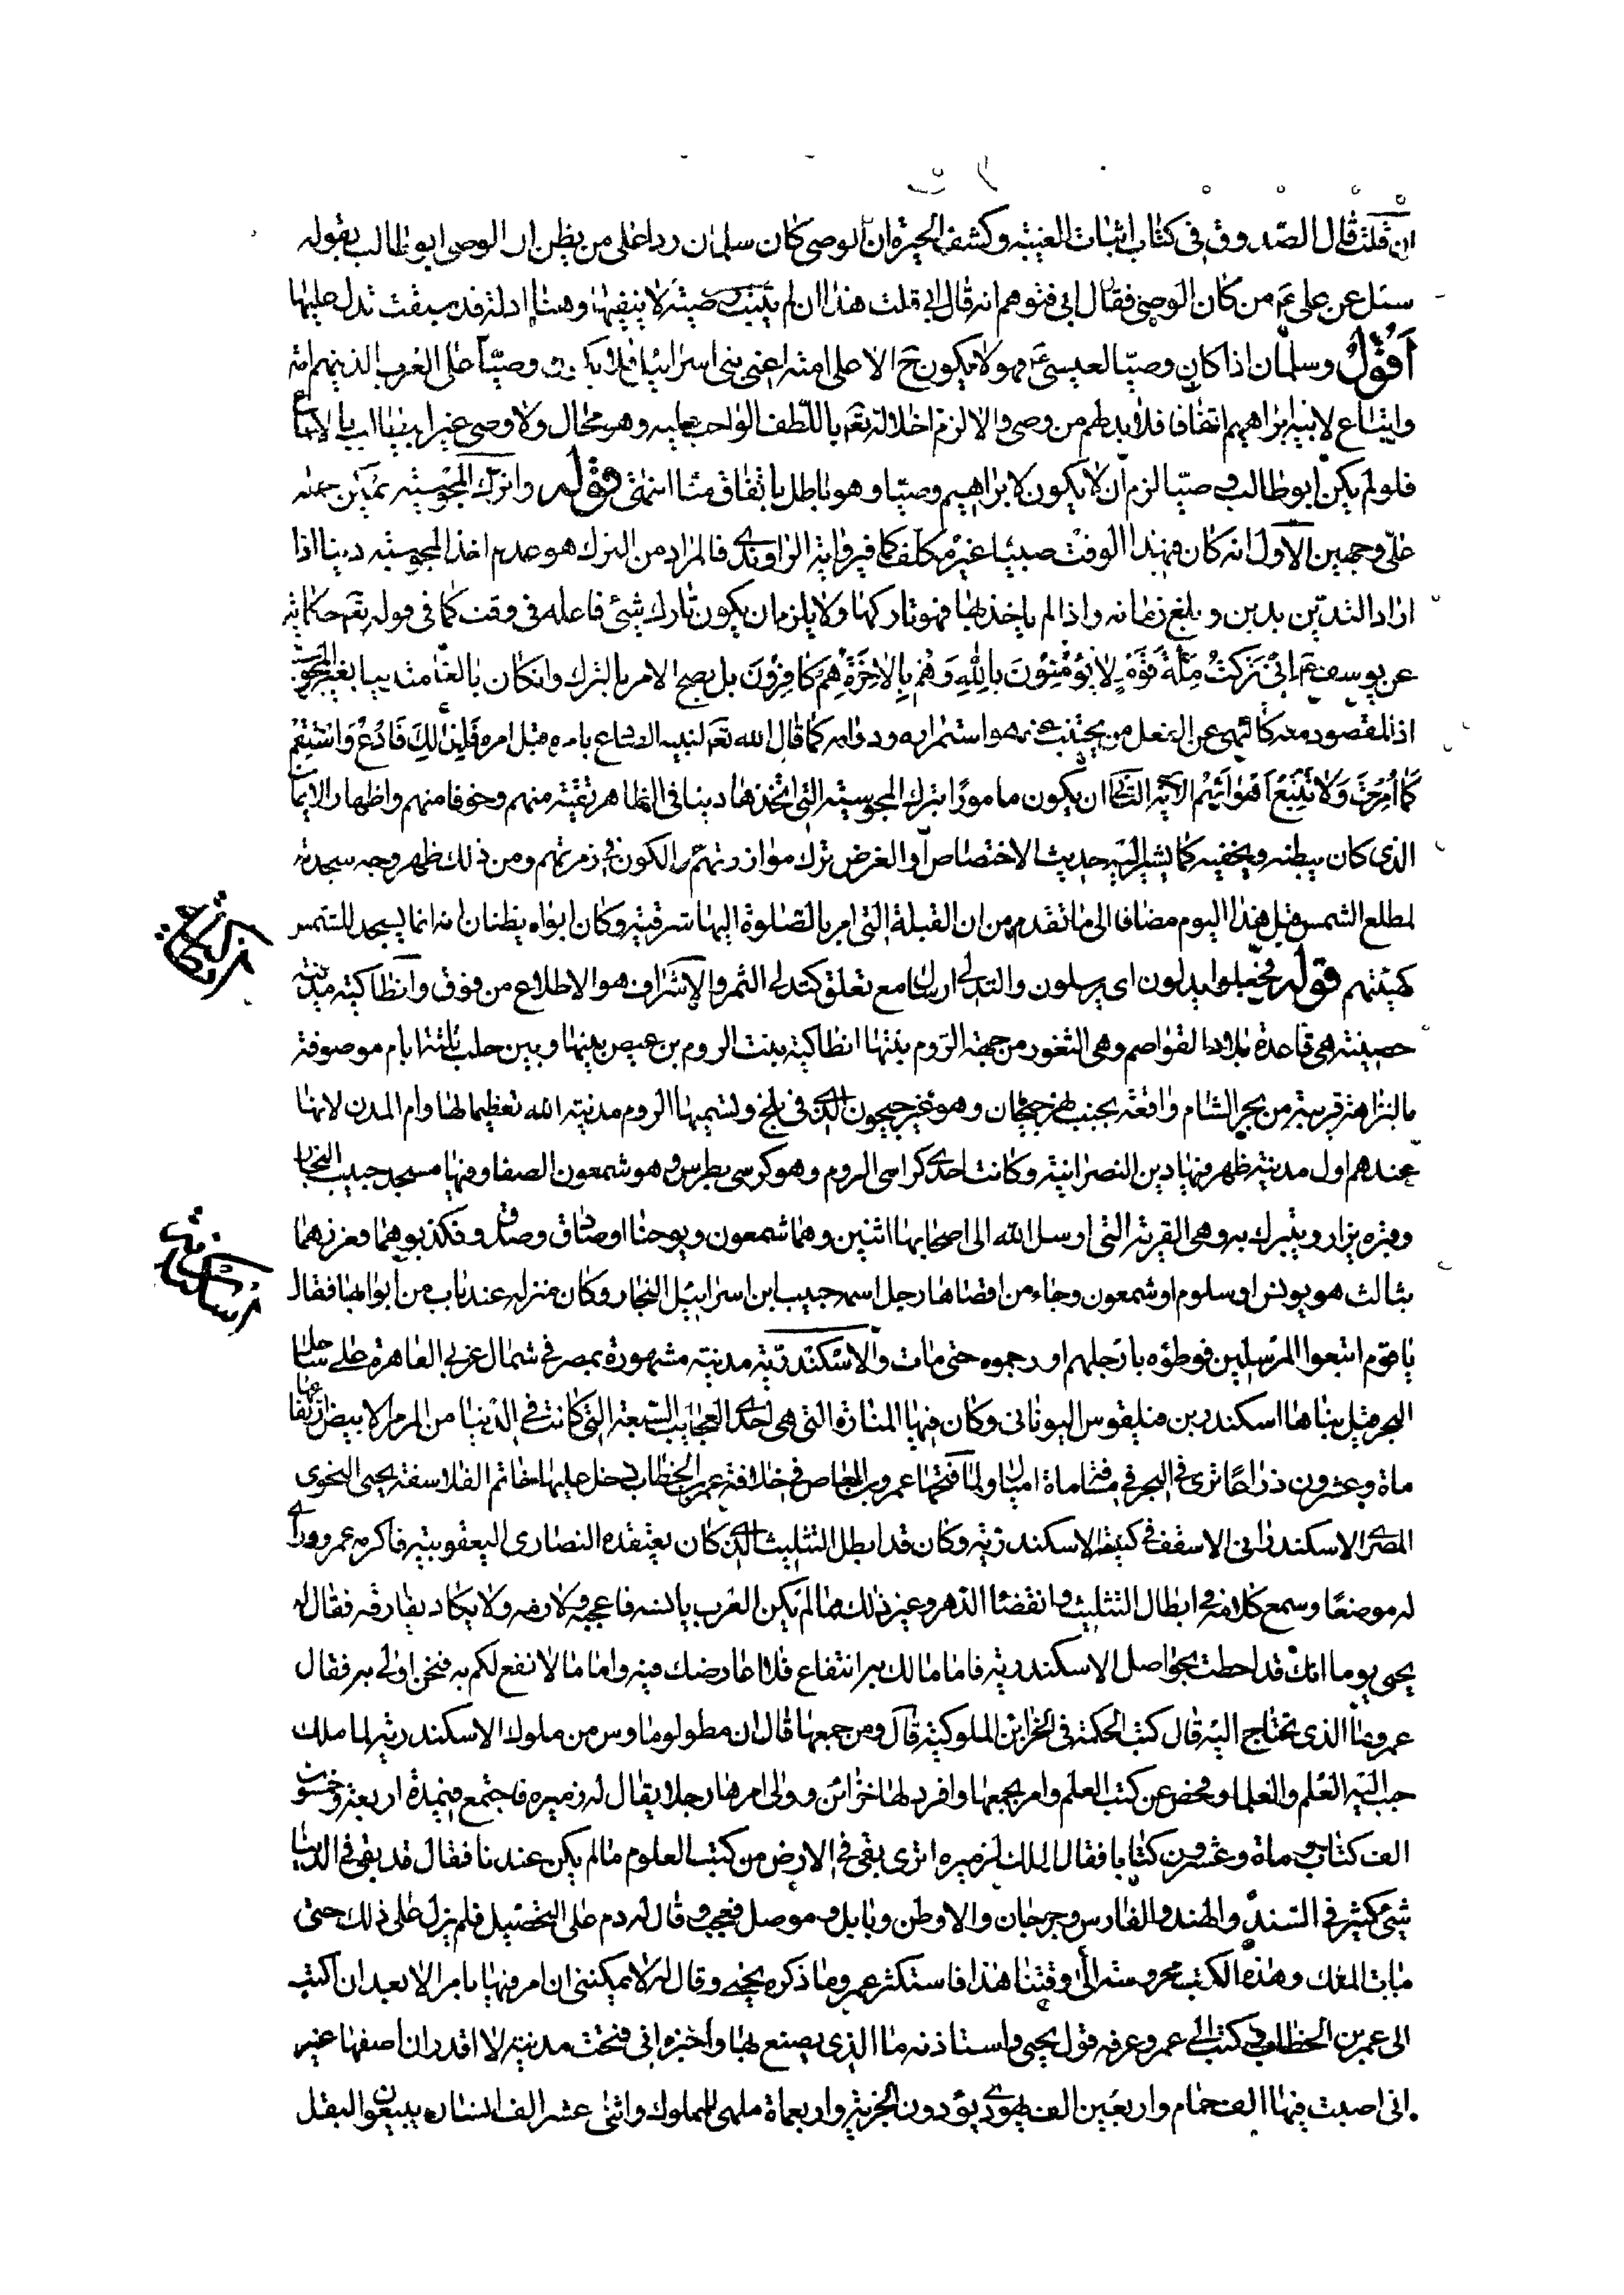 ان قلت قال الصدوق فى كتاب اثبات الغيبة وكشف الحيرة ان لوصى كان سلمان ردا على من يظن ان الوصى ابوطالب بقوله
سئل عن على ع من كان الوصى فقال ابى فتوهم انه قال ابى قلت هذا ان لم يثبت وصيته لا ينفيها وهنا ادلة قد سبقت تدل عليها
اَقُولُ وسلمان اذا كان وصيّا لعيسى ع فهو لا يكون ح الا على امته اعنى بنى اسرائيل فلا يكون وصيّاً على العرب الذينهم امة
واتباع لابيه ابراهيم اتفاقا فلابد لهم من وصى والا لزم اخلاله تعه باللّطف الواجب عليه وهو محال ولا وصى غير ابيطالب بالاجماع
فلو لم يكن ابوطالب وصيّا لزم ان لا يكون لابراهيم وصيّا وهو باطل باتفاق منا انتهى قوله واترك المجوسية يمكن حمله
على وجهين الاول انه كان فى هذا الوقت صبيّا غير مكلف كما فى رواية الراوندى فالمراد من الترك هو عدم اخذ المجوسية دينا اذا
اراد التدين بدين وبلغ زمانه واذا لم ياخذها فهو تاركها ولا يلزم ان يكون تارك شئ فاعله فى وقت كما فى قوله تعه حكاية
عن يوسف ع اِنِّى تَرَكْتُ مِلَّةَ قَوْمٍ لاٰ يُؤْمِنُونَ بِاللّٰهِ وَهُمْ بِالاٰخِرَةِ هُمْ كٰافِرُونَ بل يصح الامر بالترك وانكان بالغا متدينا بغير المجوسية
اذ المقصود منه كالنهى عن الفعل من يجتنب عنه هو استمراره ودوامه كما قال الله تعه لنبيه الصادع بامره قبل امره فَلِذٰلِكَ فَادْعُ وَاسْتَقِمْ
كَمٰا اُمِرْتَ وَلاٰ تَتَّبِعْ اَهْوٰائَهُمْ الآية الثانى ان يكون مامورًا بترك المجوسية التى اتخذها دينا فى الظاهر تقية منهم وخوفا منهم واظهار الايمان
الذى كان يبطنه ويخفيه كما يشير اليه حديث الاختصاص او الغرض ترك موازرتهم والكون فى زمرتهم ومن ذلك ظهر وجه سجدته
لمطلع الشمس قبل هذا اليوم مضافا الى ما تقدم من ان القبلة التى امر بالصلوة اليها شرقية وكان ابواه يظنان انه انما يسجد للشمس
كهيئتهم قوله فجعلوا يدلون اى يرسلون والتدلى ارسال مع تعلق كتدلى الثمر والاشراف هو الاطلاع من فوق وانطاكية مدينة
حصينة هى قاعدة بلاد العواصم وهى الثغور من جهة الروم بنتها انطاكية بنت الروم بن عيص بينها وبين حلب ثلثة ايام موصوفة
بالنزاهة قريبة من بحر الشام واقعة بجنب نهر جيحان وهو غير جيحون الذى فى بلخ وتسميها الروم مدينة الله تعظيما لها وام المدن لانها
عندهم اول مدينة ظهر فيها دين النصرانية وكانت احدى كراسى الروم وهو كرسى بطرس وهو شمعون الصفا وفيها مسجد حبيب النجار
وقبره يزار ويتبرك به وهى القرية التى ارسل الله الى اصحابها اثنين وهما شمعون ويوحنا او صادق وصدوق فكذبوهما فعززهما
بثالث هو يونس او سلوم او شمعون وجاء من اقصاها رجل اسمه حبيب ابن اسرائيل النجار وكان منزله عند باب من ابوابها فقال
يا قوم اتبعوا المرسلين فوطؤه بارجلهم او رجموه حتى مات والاسكندرية مدينة مشهورة بمصر فى شمال غربى القاهرة على ساحل
البحر قيل بناها اسكندر بن فيلقوس اليونانى وكان فيها المنارة التى هى احدى العجايب السبعة التى كانت فى الدنيا من المرمر الابيض ارتفاعها
ماة وعشرون ذراعًا ترى فى البحر فى مسافة ماة اميال ولما فتحها عمرو بن العاص فى خلافة عمر بن الخطاب دخل عليها خاتم الفلاسفة يحيى النحوى
المصرى الاسكندرانى الاسقف فى كنيسة الاسكندرية وكان قد ابطل التثليث الذى كان يعتقده النصارى اليعقوبية فاكرمه عمرو وراى
له موضعًا وسمع كلامه فى ابطال التثليث وانقضاء الدهر وغير ذلك مما لم يكن العرب يانسه فاعجبه ولازمه ولا يكاد يفارقه فقال له
يحيى يوما انك قد احطت بحواصل الاسكندرية فاما ما لك به انتفاع فلا اعارضك فيه واما ما لا نفع لكم به فنحن اولى به فقال
عمرو ما الذى تحتاج اليه قال كتب الحكمة فى الخزاين الملوكية قال ومن جمعها قال ان مطولوماوس من ملوك الاسكندرية لما ملك
حبب اليه العلم والعلماء وفحص عن كتب العلم وامر بجمعها وافرد لها خزائن وولى امرها رجلا يقال له زميره فاجتمع فى مدة اربعة وخمسون
الف كتاب وماة وعشرون كتابا فقال الملك لزميره اترى بقى فى الارض من كتب العلوم مالم يكن عندنا فقال قد بقى فى الدنيا
شئ كثير فى السند والهند والفارس وجرجان والاوطن وبابل وموصل فعجب وقال له دم على التحصيل فلم يزل على ذلك حتى
مات الملك وهذه الكتب محروسة الى وقتنا هذا فاستكثر عمرو ما ذكره يحيى وقال له لا يمكننى ان امر فيها بامر الا بعد ان اكتب
الى عمر بن الخطاب فكتب الى عمر وعرفه قول يحيى واستاذنه ما الذى يصنع بها واخبره انى فتحت مدينة لا اقدر ان اصفها غير
انى اصبت فيها الف حمام واربعين الف يهودى يؤدون الجزية واربعماة ملهى للملوك واثنى عشر الف انسان يبيعون البقل
ترك كما